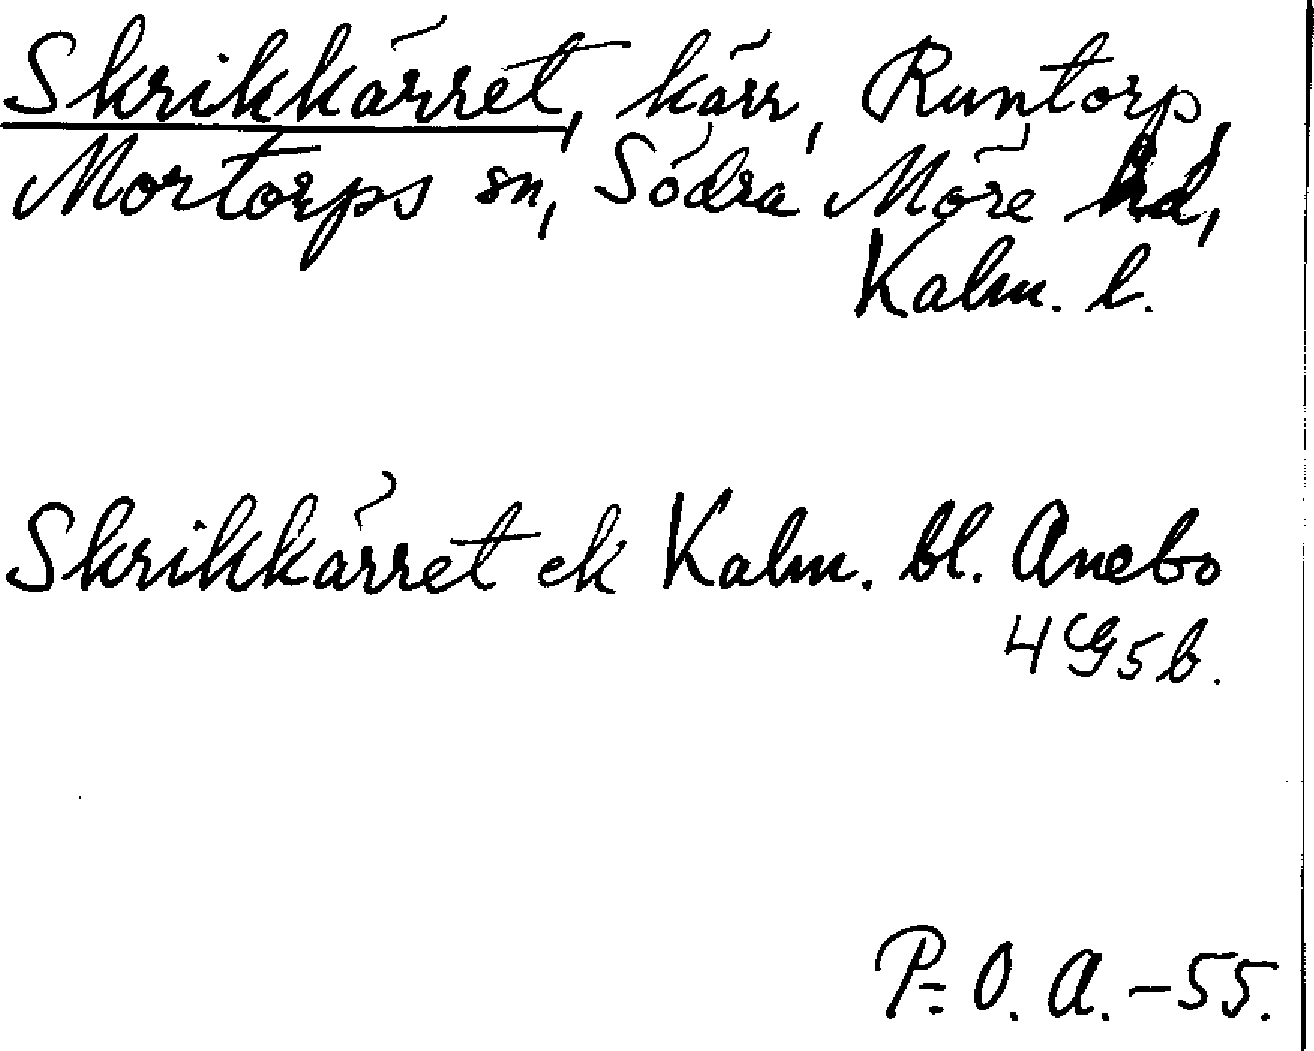 Skrikkärret, kärr, Runtorp,
Mortorps sn, Södra Möre hd,
Kalm. l.
Skrikkärret ek Kalm. bl. Anebo
4G5b.
P-O.A.-55.